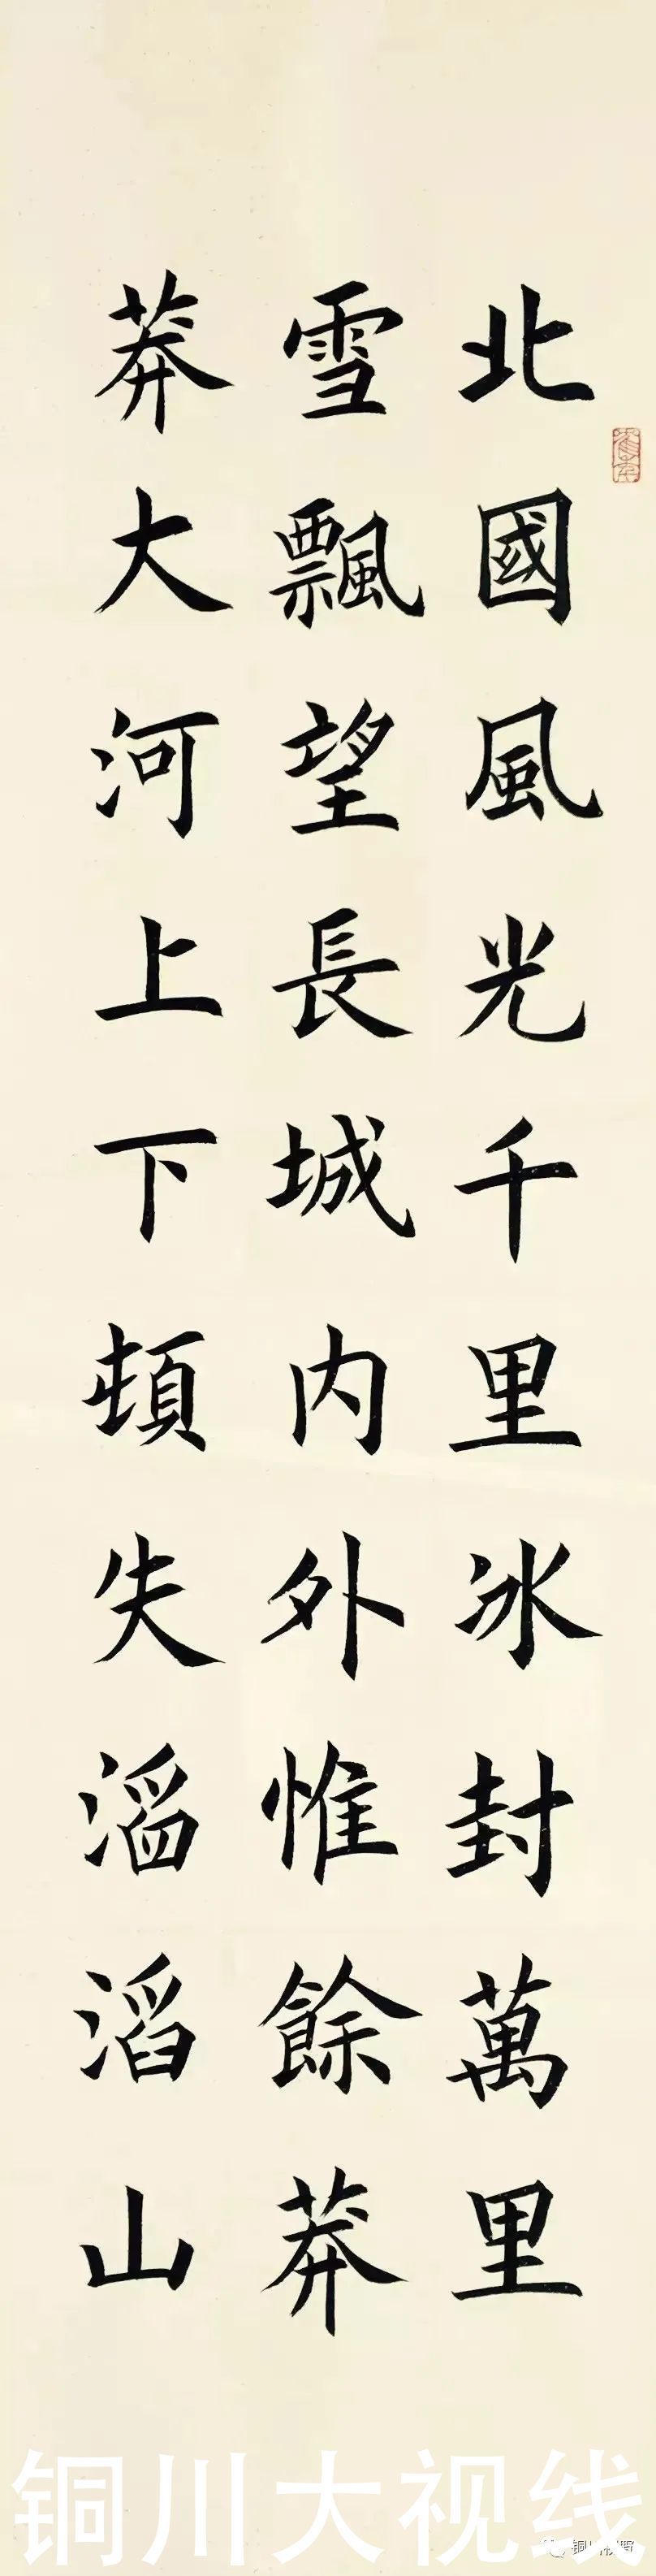 北國風光千里冰封萬里
雪飄望長城内外惟餘莽
莽大河上下頓失滔滔山
铜川大视线